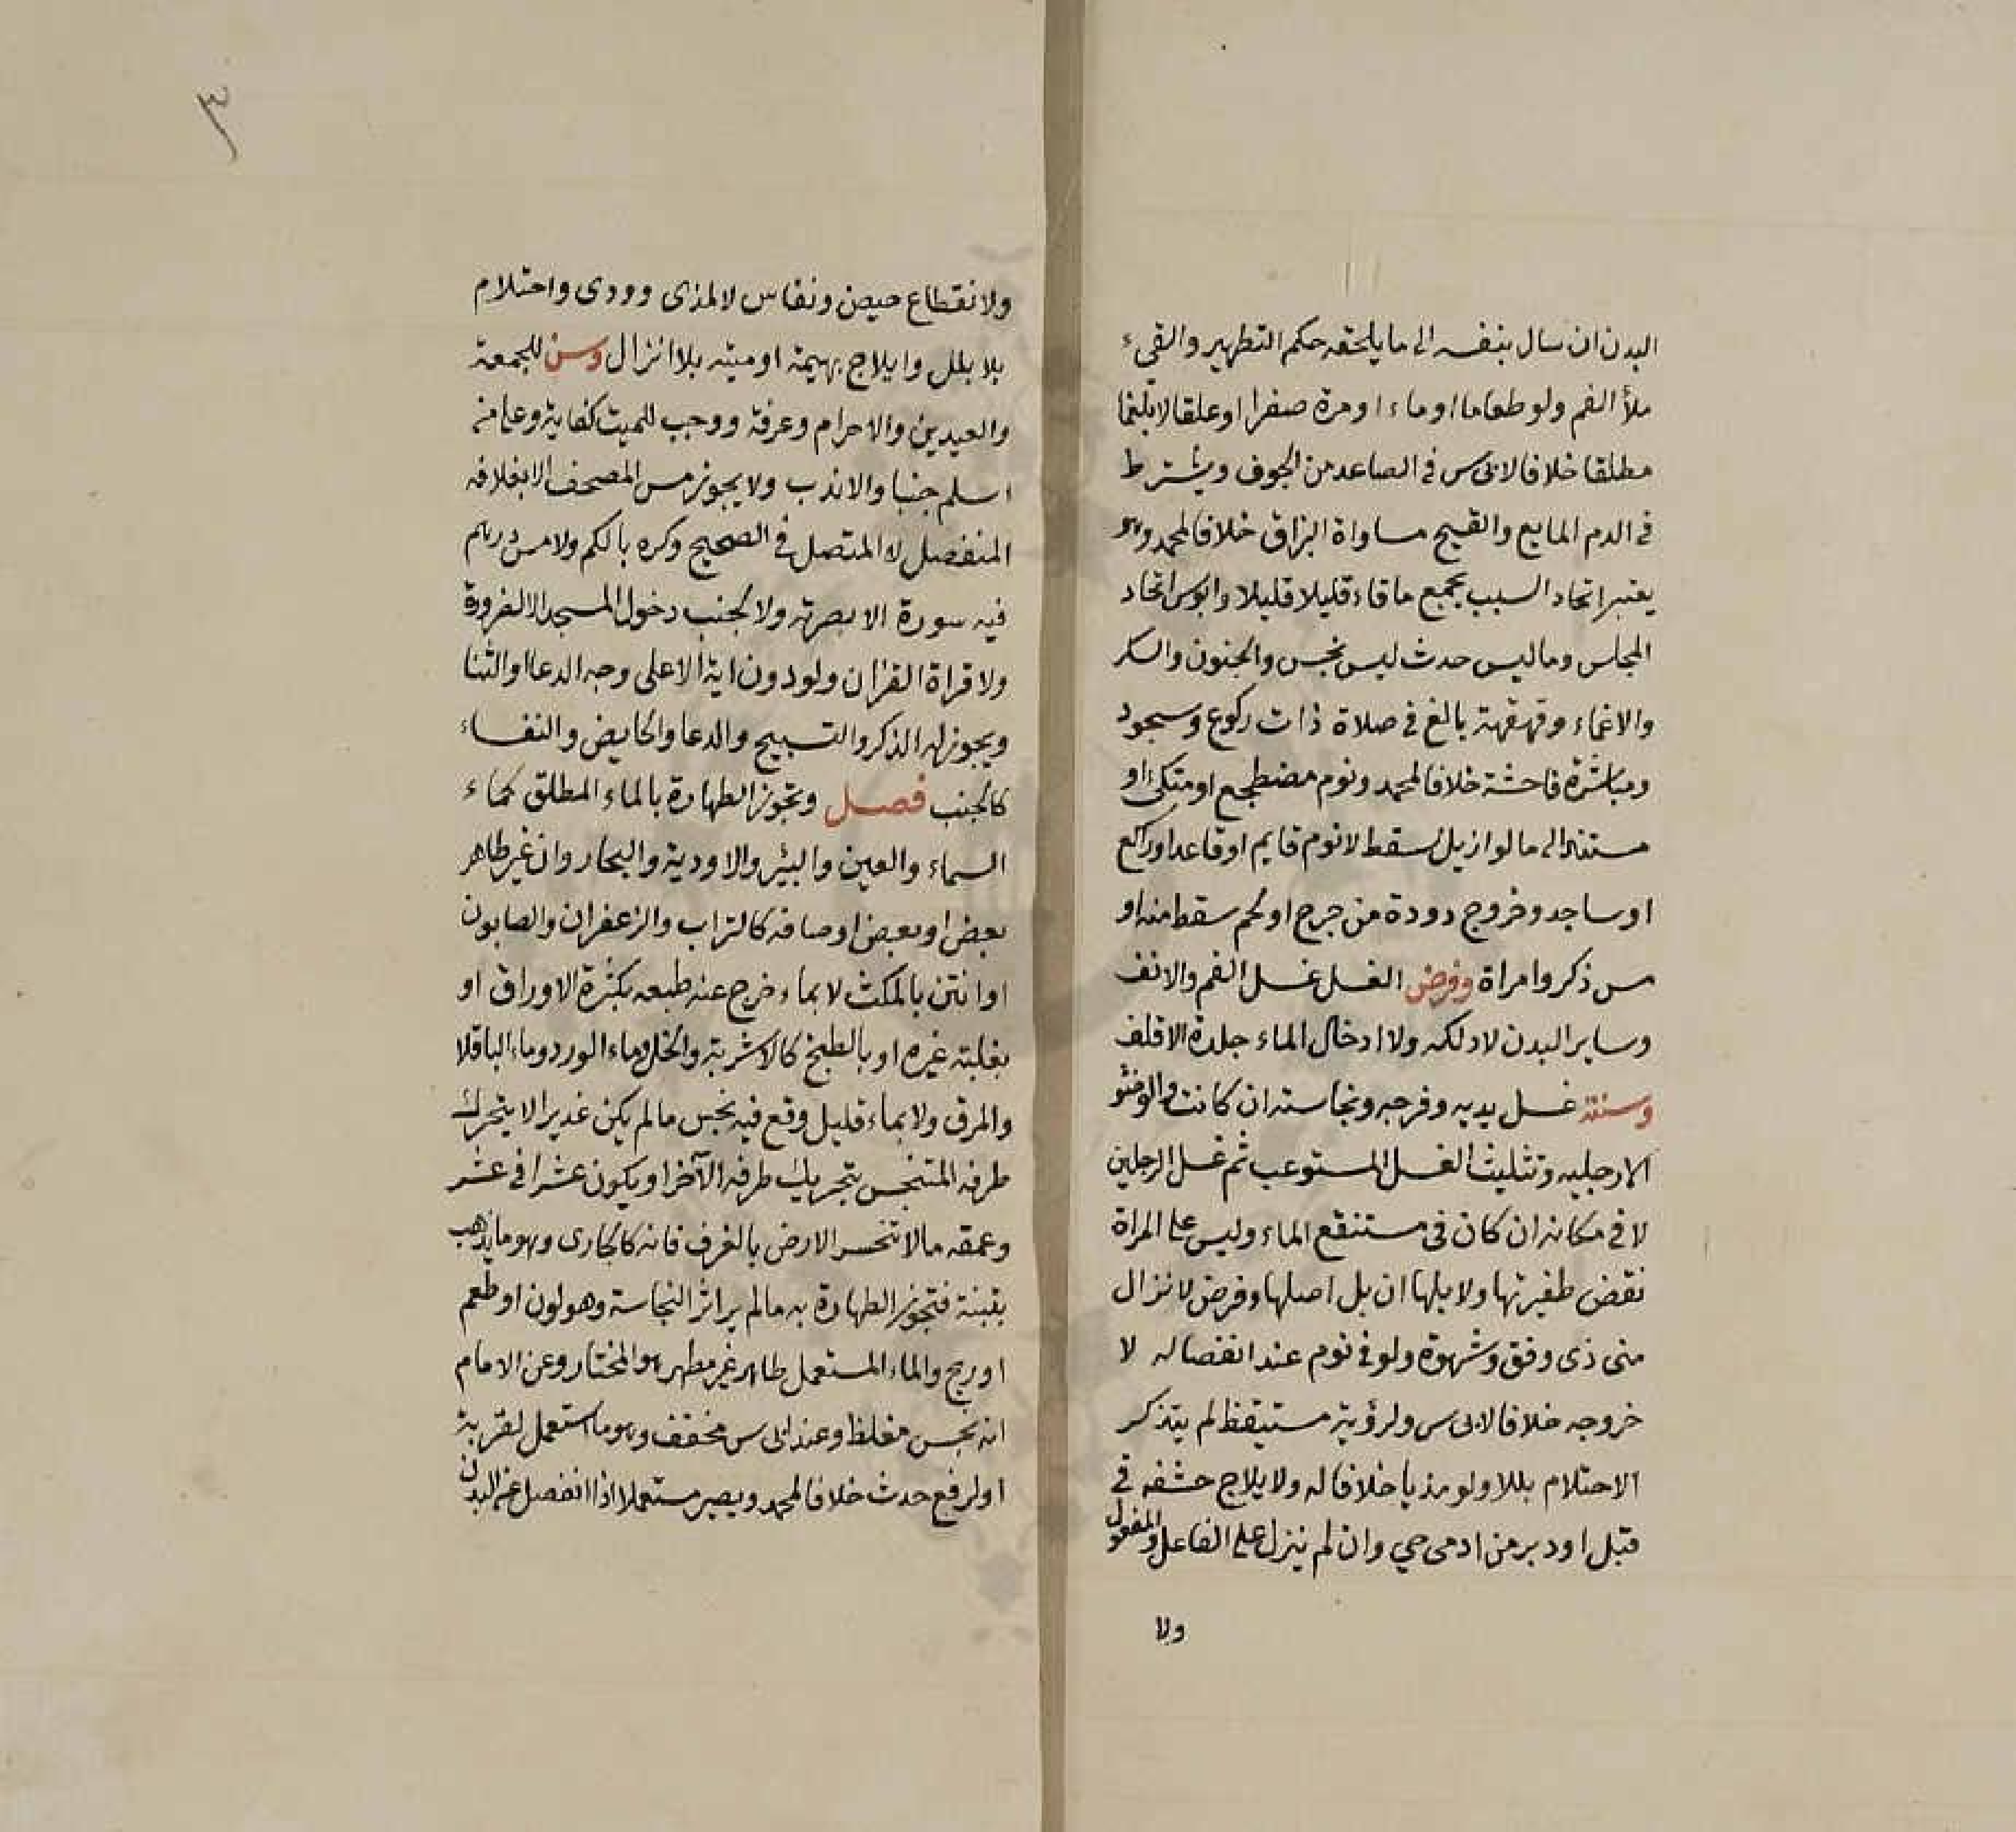 البدن ان سال بنفسه الى ما يلحقه حكم التطهير والقيء
ملأ الفم ولو طعاما او ماء او مرة صفرا او علقا لا بلغما
مطلقا خلافا لابى س فى الصاعد من الجوف ويشترط
فى الدم المايع والقيح مساواة البزاق خلافا لمحمد وهو
يعتبر اتحاد السبب بجمع ما قاء قليلا قليلا وابوس اتحاد
المجلس وما ليس حدث ليس نجس والجنون والسكر
والاغماء وقهقهة بالغ فى صلاة ذات ركوع وسجود
ومباشرة فاحشة خلافا لمحمد ونوم مضطجع او متكئ او
مستند الى ما لو ازيل لسقط لا نوم قايم او قاعد او راكع
او ساجد وخروج دودة من جرح او لحم سقط منه او
مس ذكر وامراة وفرض الغسل غسل الفم والانف
وساير البدن لا دلكه ولا ادخال الماء جلدة الاقلف
وسنته غسل يديه وفرجه ونجاسته ان كانت والوضو
الا رجليه وتثليث الغسل المستوعب ثم غسل الرجلين
لا فى مكانه ان كان فى مستنقع الماء وليس على المراة
نقض ظفيرتها ولا بلها ان بل اصلها وفرض لانزال
منى ذى دفق وشهوة ولو فى نوم عند انفصاله لا
خروجه خلافا لابى س ولرؤية مستيقظ لم يتذكر
الاحتلام بللا ولو مذيا خلافا له ولايلاج حشفه فى
قبل او دبر من ادمى حي وان لم ينزل على الفاعل والمفعول
ولا
٣
ولانقطاع حيض ونفاس لا لمذى وودى واحتلام
بلا بلل وايلاج بهيمة او ميته بلا انزال وسن للجمعة
والعيدين والاحرام وعرفة ووجب للميت كفاية وعلى من
اسلم جنبا والا ندب ولا يجوز مس المصحف الا بغلافه
المنفصل لا المتصل فى الصحيح وكره بالكم ولا مس درهم
فيه سورة الا بصرته ولا لجنب دخول المسجد الا لضرورة
ولا قراة القران ولو دون اية الا على وجه الدعا او الثنا
ويجوز له الذكر والتسبيح والدعا والحايض والنفساء
كالجنب فصل وتجوز الطهارة بالماء المطلق كماء
السماء والعين والبئر والاودية والبحار وان غير طاهر
بعض او بعض اوصافه كالتراب والزعفران والصابون
او انتن بالمكث لا بماء خرج عنه طبعه بكثرة الاوراق او
بغلبته غيره او بالطبخ كالاشربة والخل وماء الورد وماء الباقلا
والمرق ولا بماء قليل وقع فيه نجس مالم يكن غديرا لا يتحرك
طرفه المتنجس بتحريك طرفه الآخر او يكون عشرا فى عشر
وعمقه مالا تنحسر الارض بالغرف فانه كالجارى وهو ما يذهب
بتبنة فتجوز الطهارة به مالم ير اثر النجاسة وهو لون او طعم
او ريح والماء المستعمل طاهر غير مطهر هو المختار وعن الامام
انه نجس مغلظ وعند ابى س مخفف وهو ما استعمل لقربة
او لرفع حدث خلافا لمحمد ويصير مستعملا اذا انفصل عن البدن